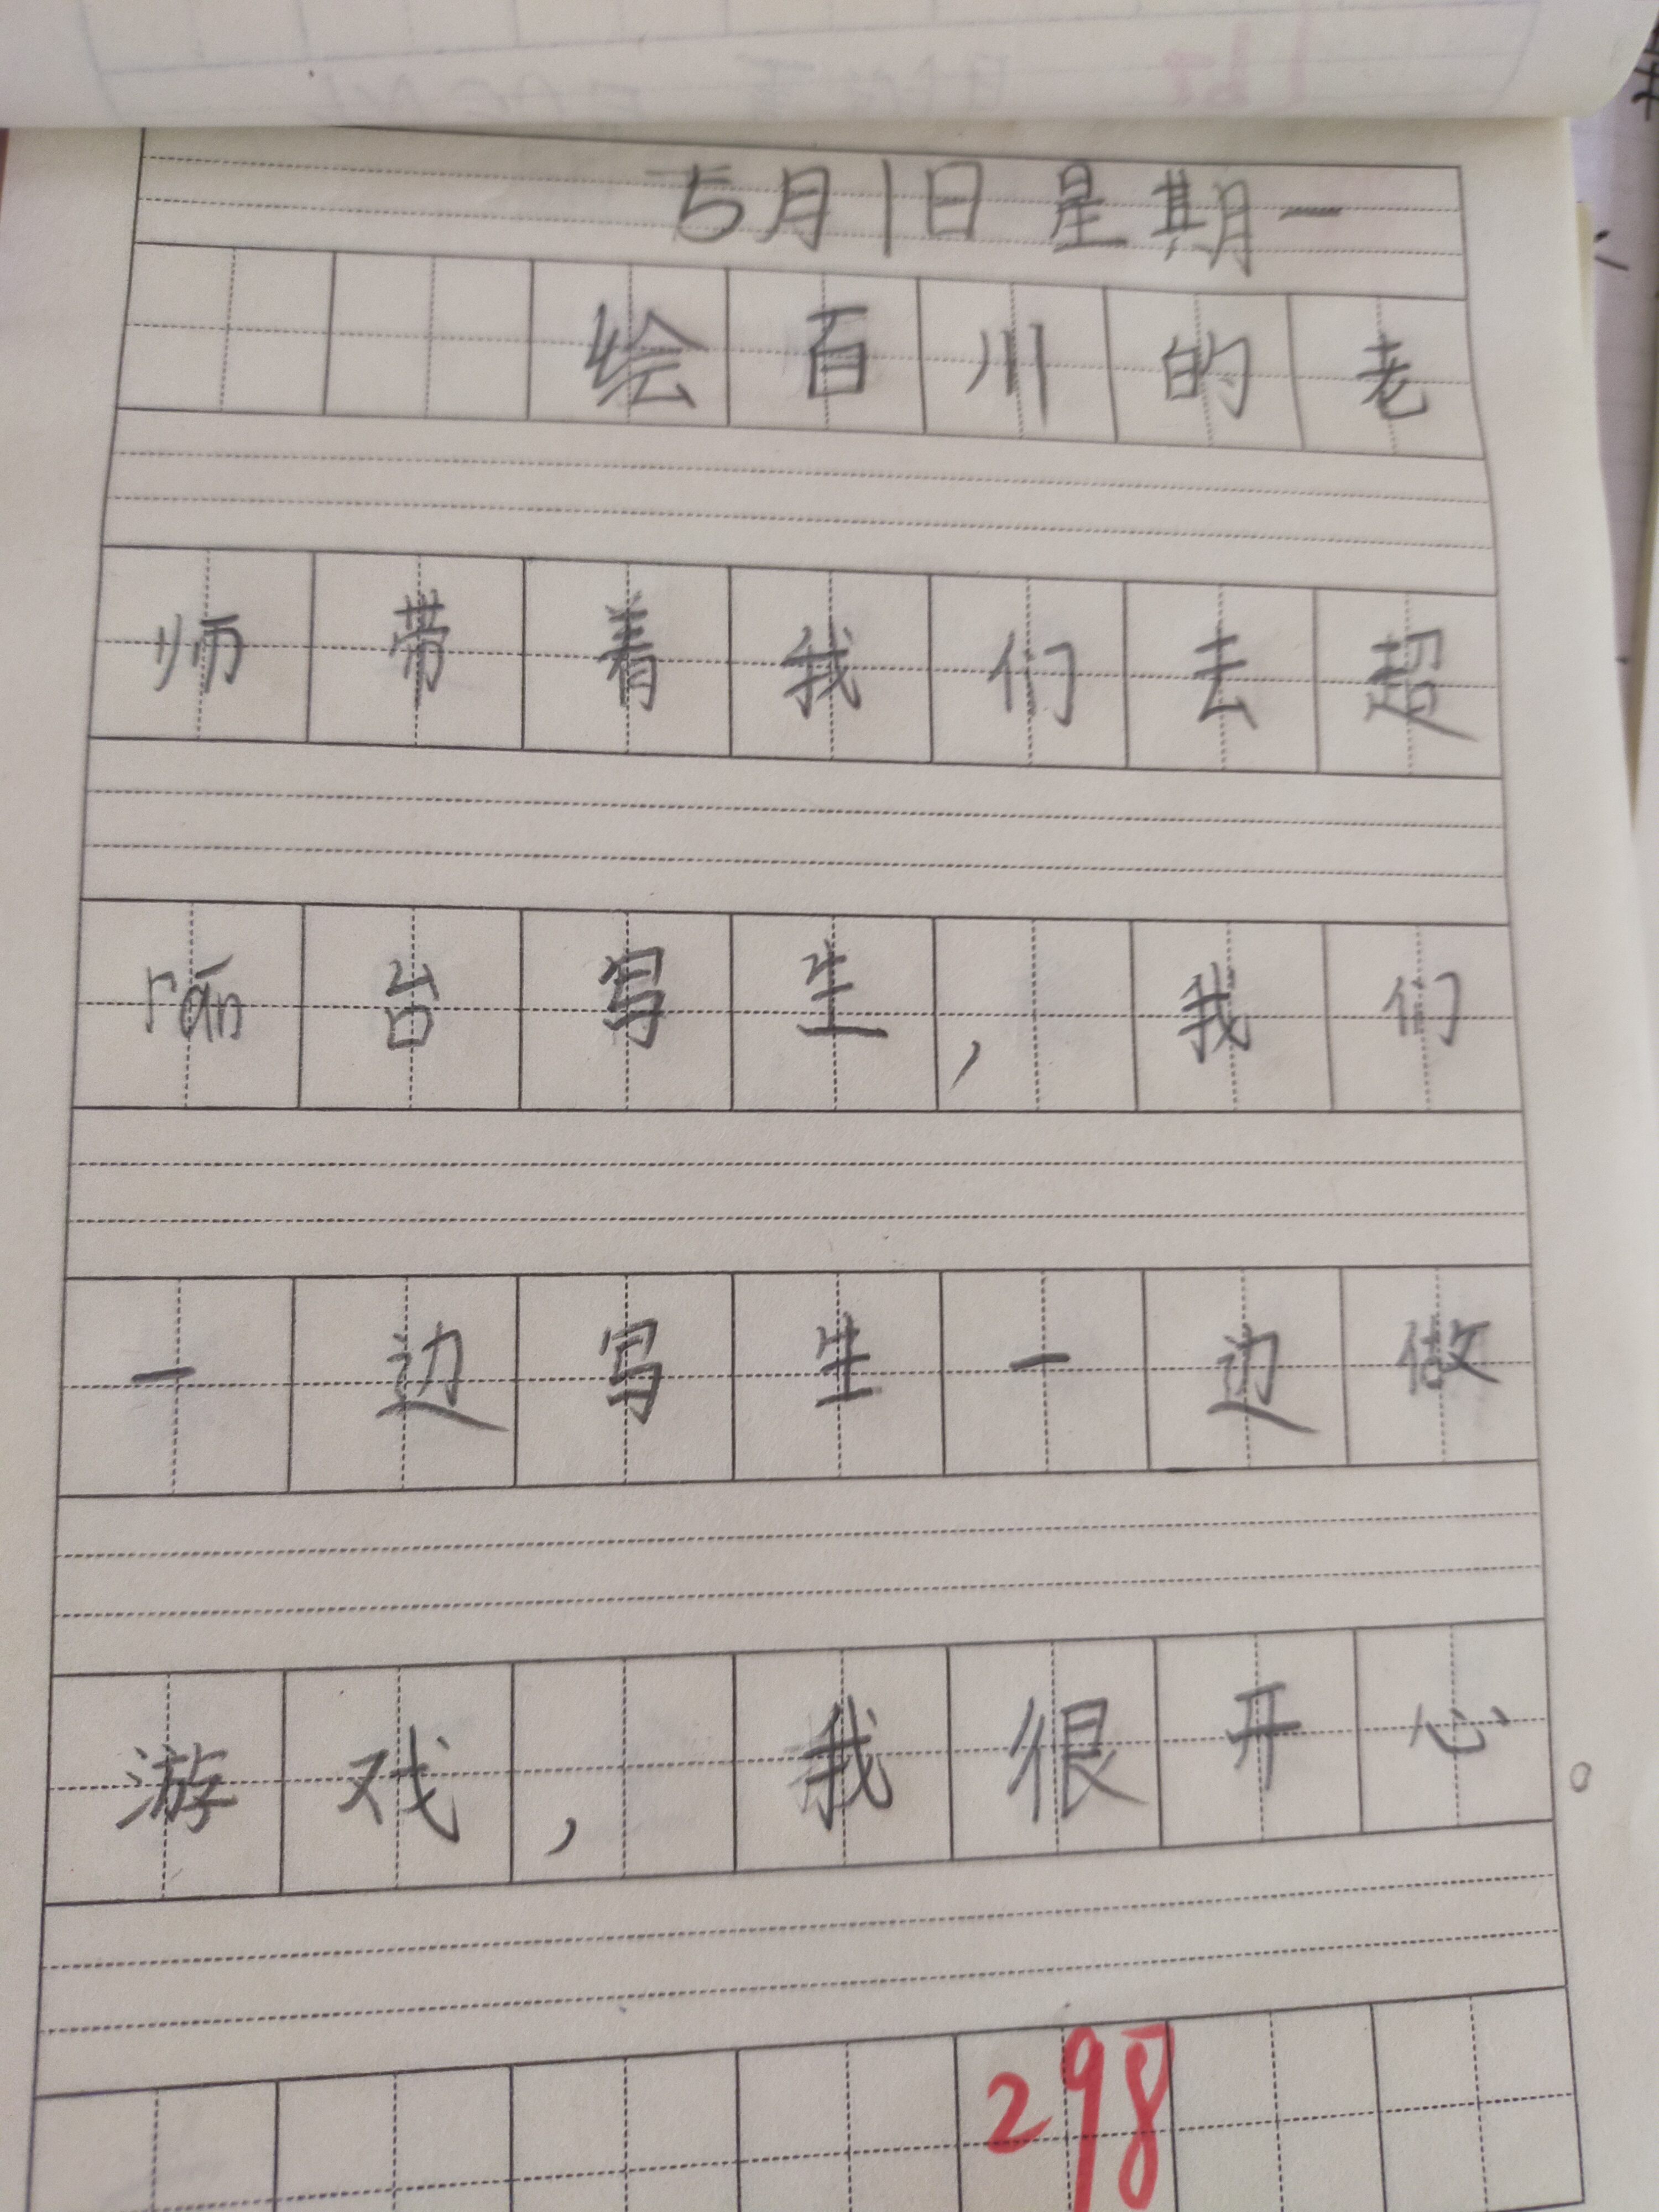 5月1日 星期一
绘百川的老
师带着我们去超
rān台写生，我们
一边写生一边做
游戏，我很开心。
298